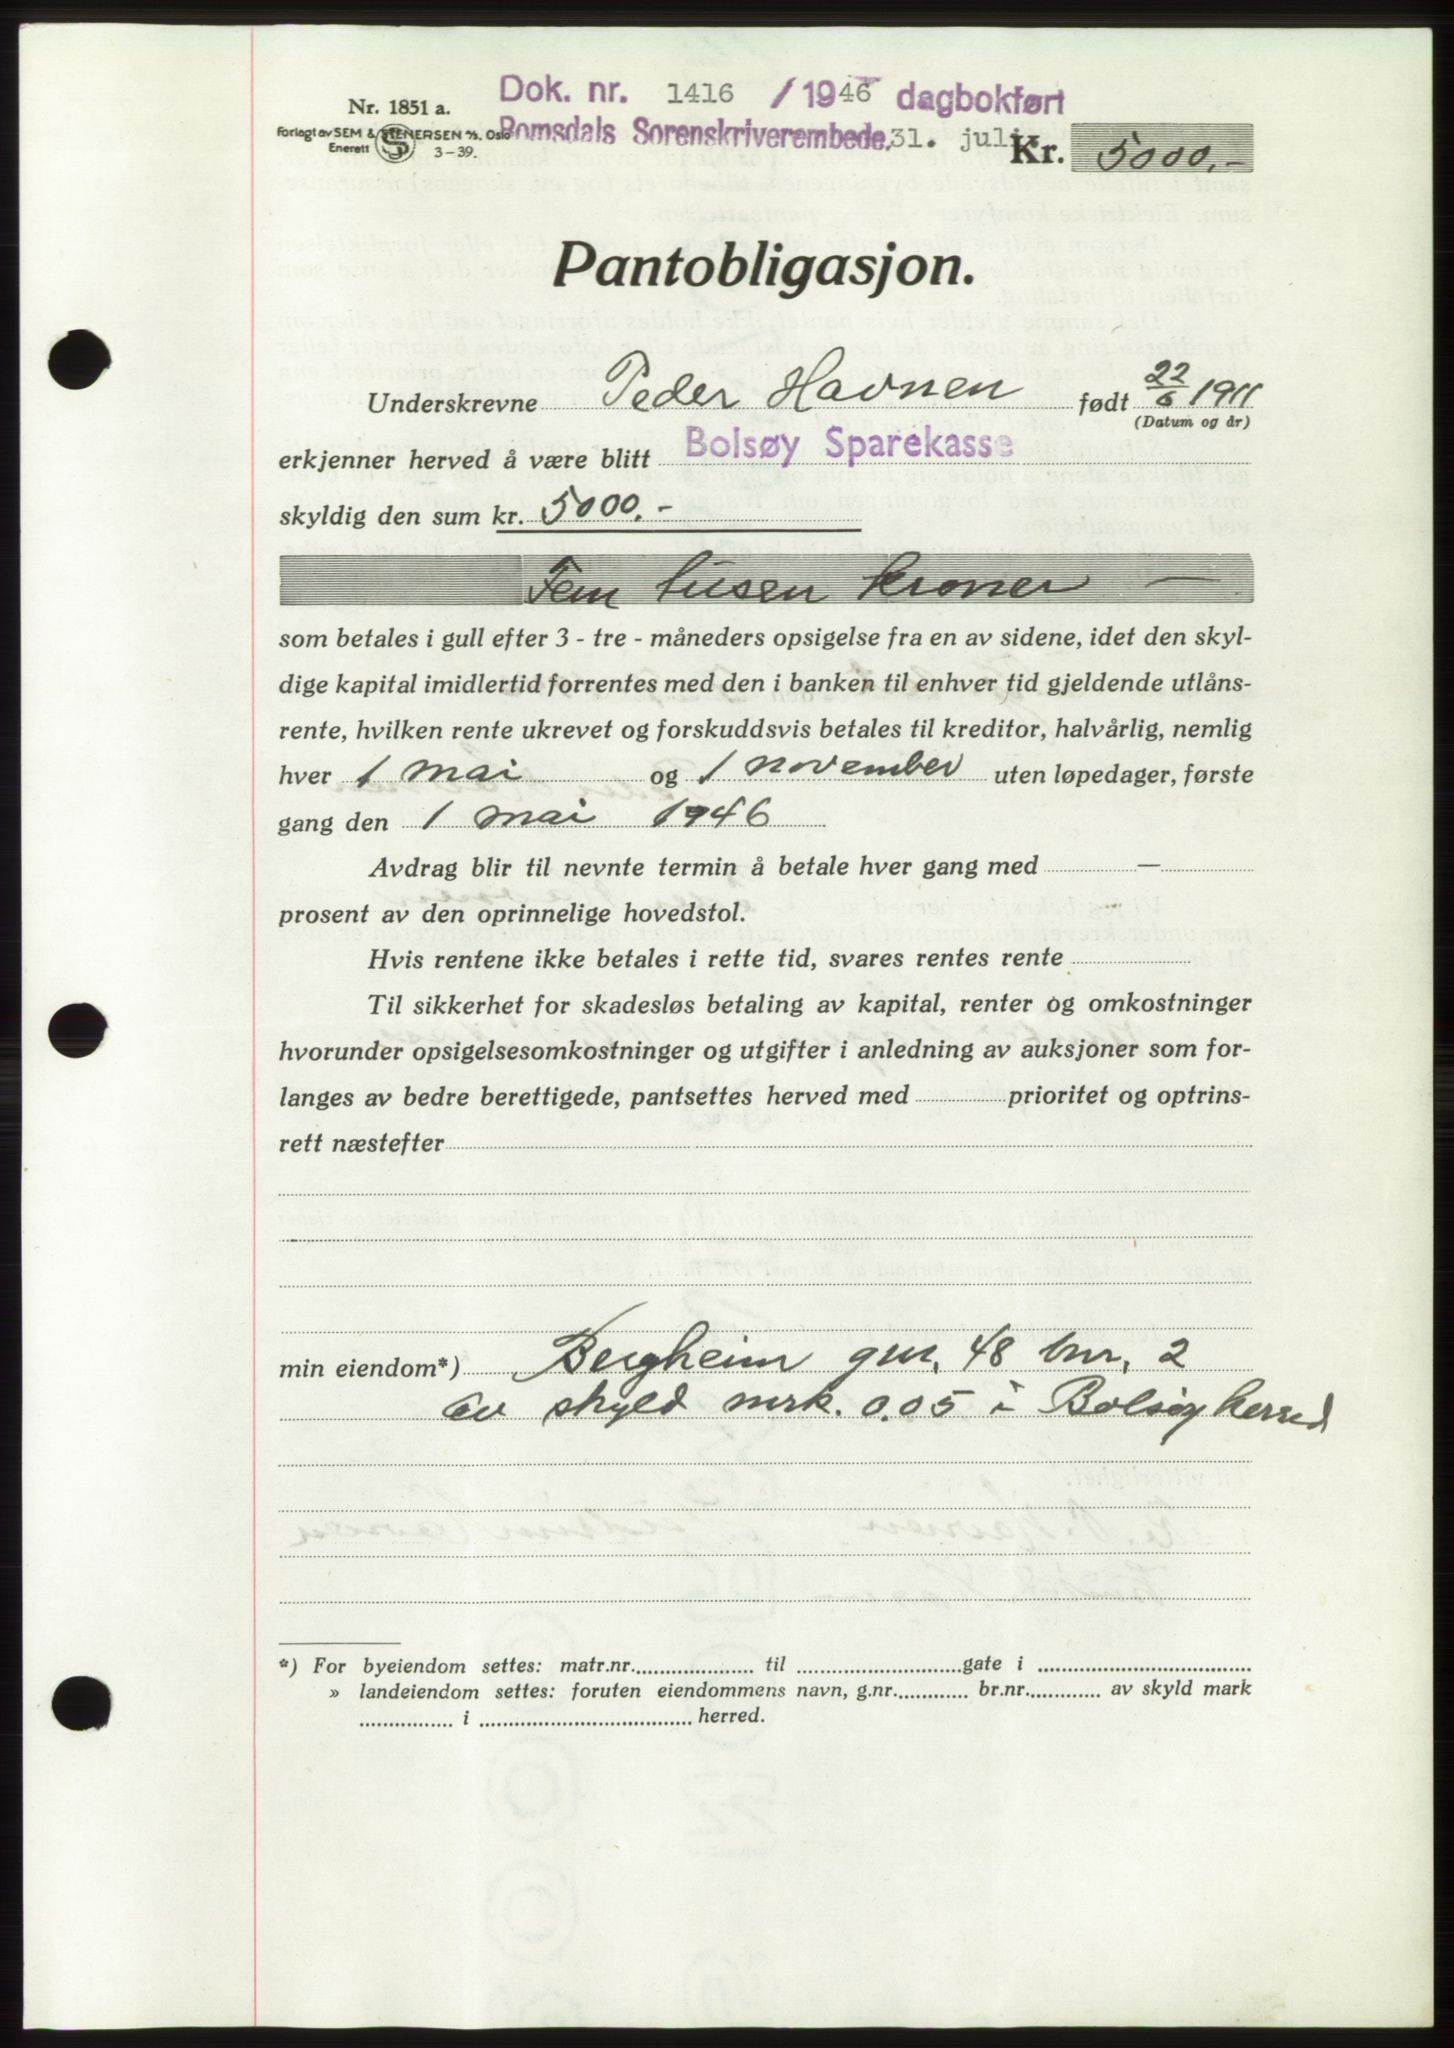 Nr. 1851 a.
Forlagt av SEM & STENERSEN A/S. Oslo
Enerett 3-39.
Dok. nr. 1416 / 1946 dagbokført
Romsdals Sorenskriverembede. 31. juli
Kr. 5000.-
Pantobligasjon.
Underskrevne Peder Havnen født 22/6 1911
(Datum og år)
erkjenner herved å være blitt Bolsøy Sparekasse
skyldig den sum kr. 5000.-
Fem tusen kroner —
som betales i gull efter 3 - tre - måneders opsigelse fra en av sidene, idet den skyl-
dige kapital imidlertid forrentes med den i banken til enhver tid gjeldende utlåns-
rente, hvilken rente ukrevet og forskuddsvis betales til kreditor, halvårlig, nemlig
hver 1 mai og 1 november uten løpedager, første
gang den 1 mai 1946
Avdrag blir til nevnte termin å betale hver gang med —
prosent av den oprinnelige hovedstol.
Hvis rentene ikke betales i rette tid, svares rentes rente
Til sikkerhet for skadesløs betaling av kapital, renter og omkostninger
hvorunder opsigelsesomkostninger og utgifter i anledning av auksjoner som for-
langes av bedre berettigede, pantsettes herved med prioritet og optrins-
rett næstefter
min eiendom*) Bergheim gnr. 48 bnr. 2
av skyld mrk. 0.05 i Bolsøy herred
*) For byeiendom settes: matr.nr. til gate i
» landeiendom settes: foruten eiendommens navn, g.nr. br.nr. av skyld mark
i herred.